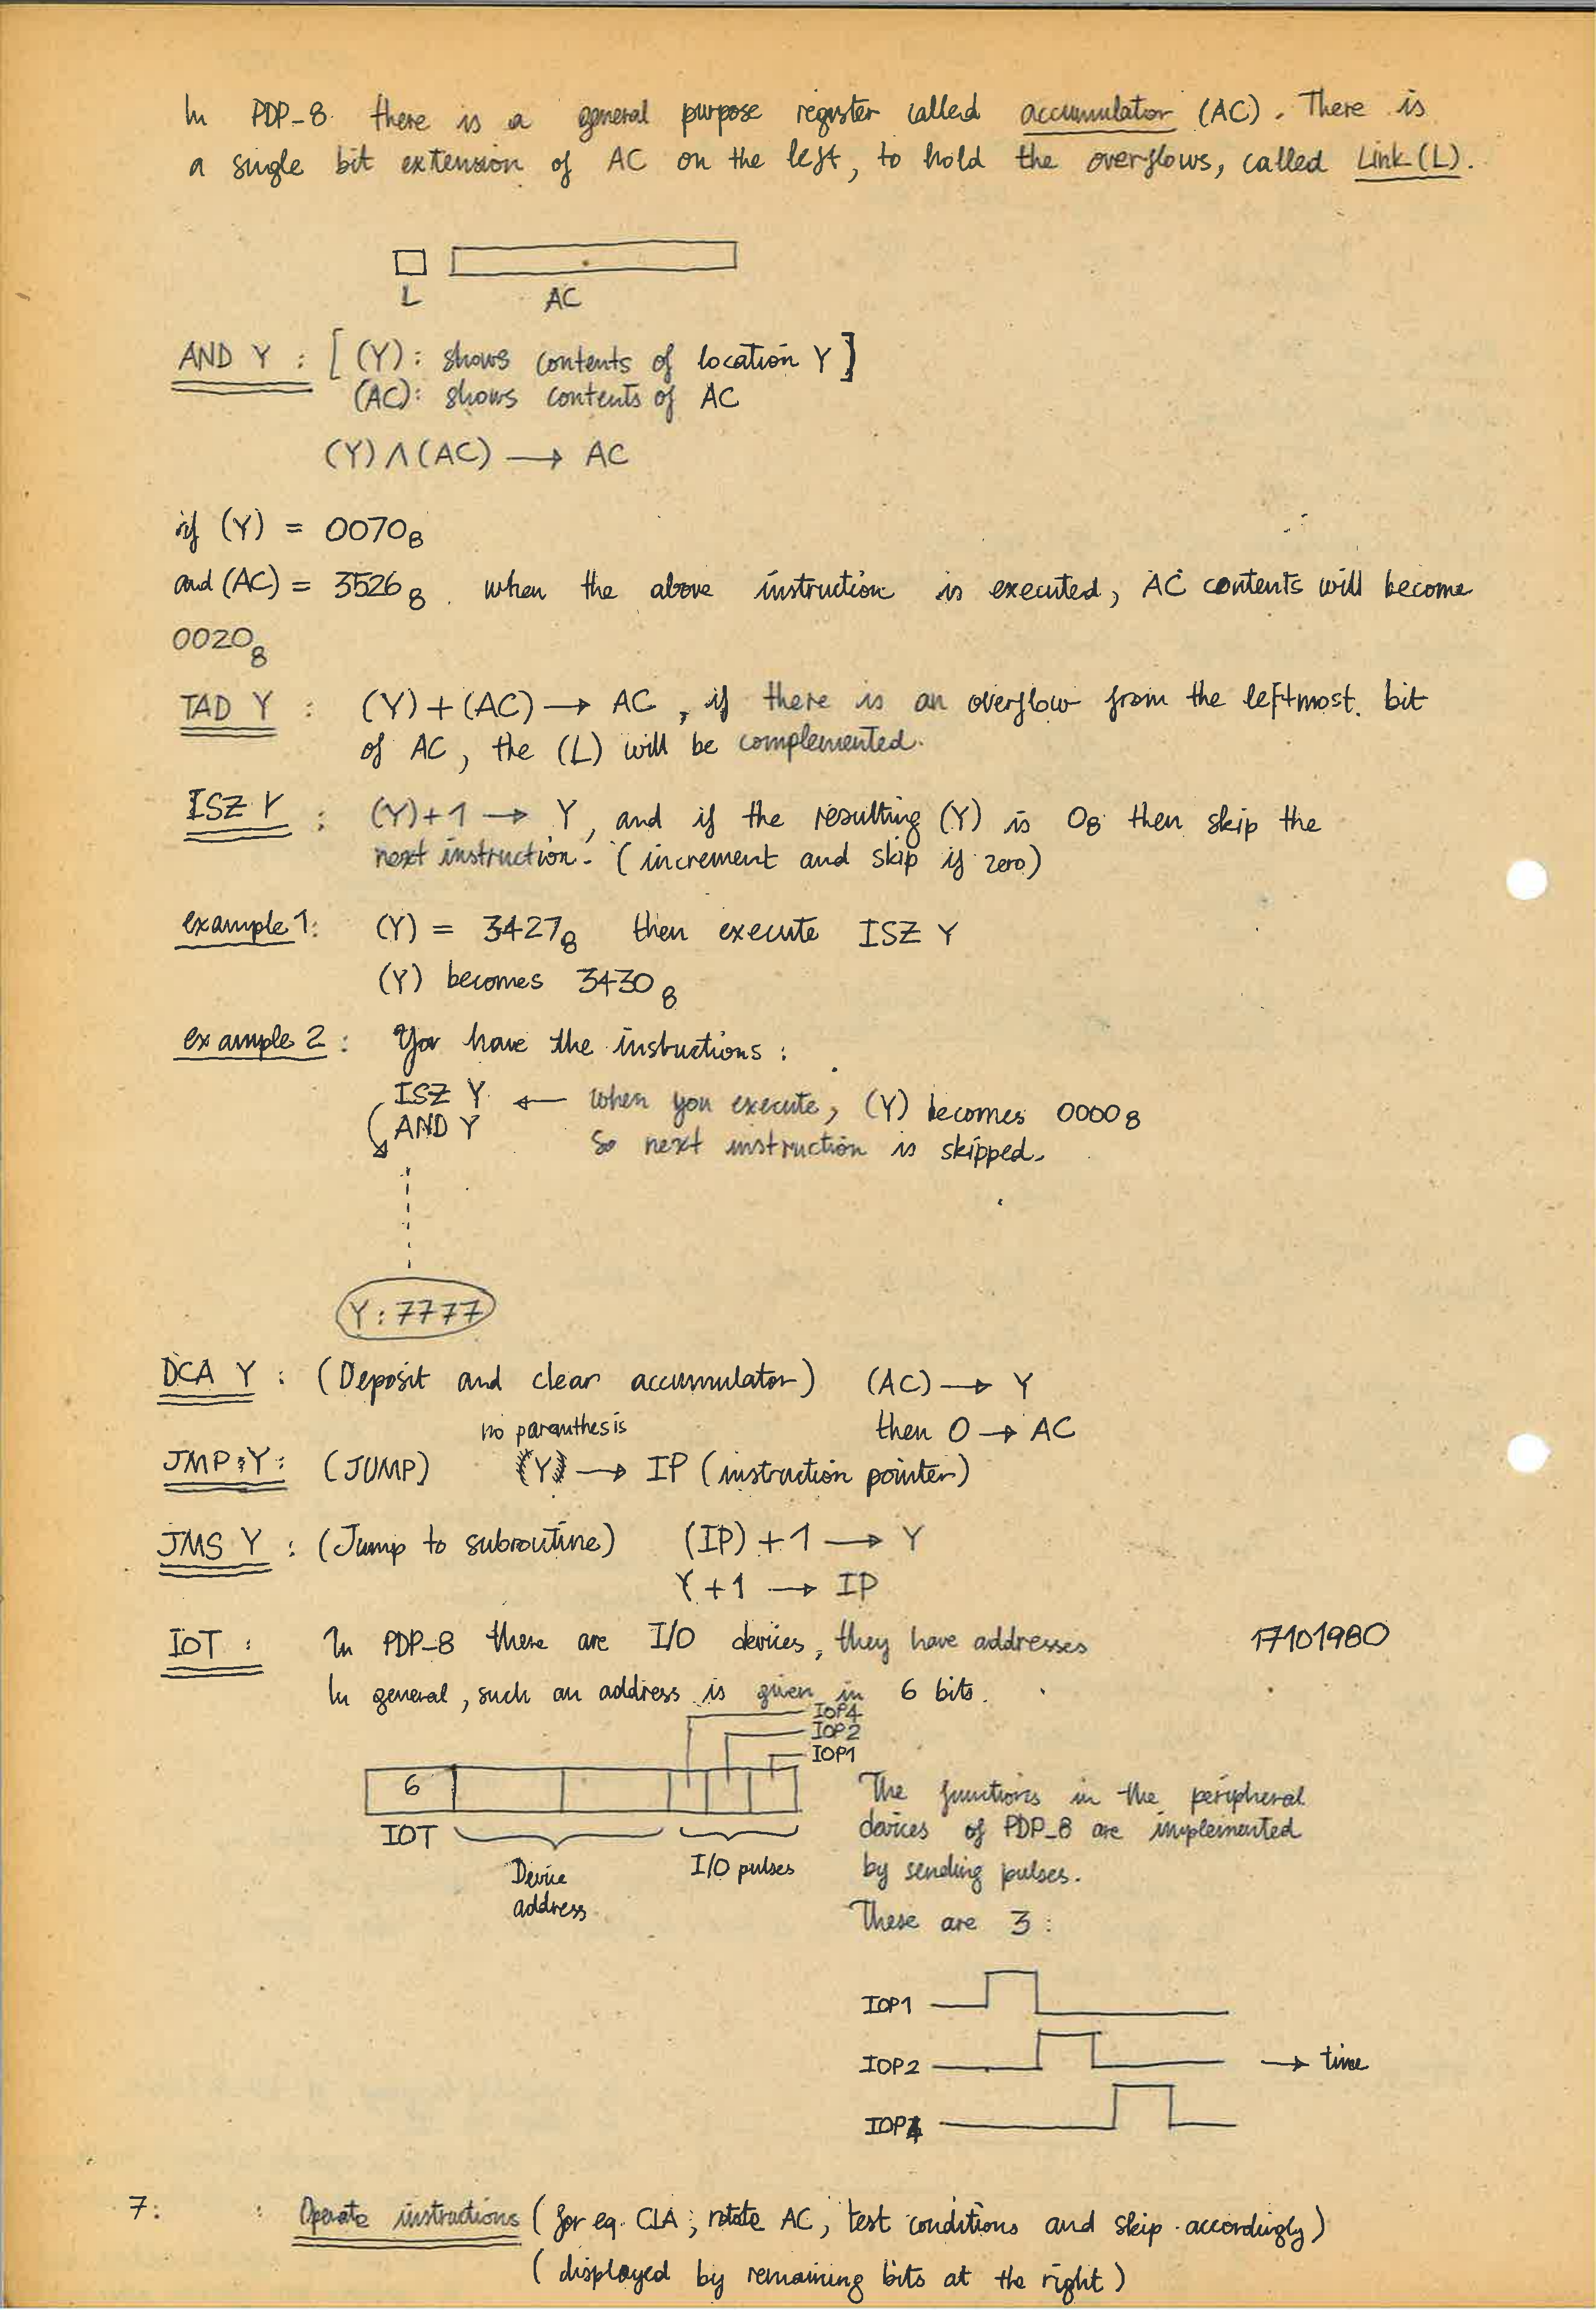 In PDP-8 there is a general purpose register called accumulator (AC). There is
a single bit extension of AC on the left, to hold the overflows, called Link (L).
L AC
AND Y : [ (Y): shows contents of location Y ]
(AC): shows contents of AC
(Y) Λ (AC) → AC
if (Y) = 0070₈
and (AC) = 3526₈ . when the above instruction is executed, AC contents will become
0020₈
TAD Y : (Y) + (AC) → AC , if there is an overflow from the leftmost bit
of AC, the (L) will be complemented.
ISZ Y : (Y)+1 → Y, and if the resulting (Y) is 0₈ then skip the
next instruction. (increment and skip if zero)
example 1: (Y) = 3427₈ then execute ISZ Y
(Y) becomes 3430₈
example 2 : You have the instuctions :
ISZ Y ← When you execute, (Y) becomes 0000₈
AND Y So next instruction is skipped.
Y : 7777
DCA Y : (Deposit and clear accumulator) (AC) → Y
no paranthesis then 0 → AC
JMP Y : (JUMP) (Y) → IP (instruction pointer)
JMS Y : (Jump to subroutine) (IP) + 1 → Y
Y + 1 → IP
IOT : In PDP-8 there are I/O devices, they have addresses 17101980
In general, such an address is given in 6 bits.
IOP4
IOP2
IOP1
6
IOT Device address I/O pulses
The functions in the peripheral
devices of PDP-8 are implemented
by sending pulses.
These are 3 :
IOP1
IOP2 → time
IOP4
7: : Operate instructions (for eg. CLA; rotate AC, test conditions and skip accordingly)
(displayed by remaining bits at the right)